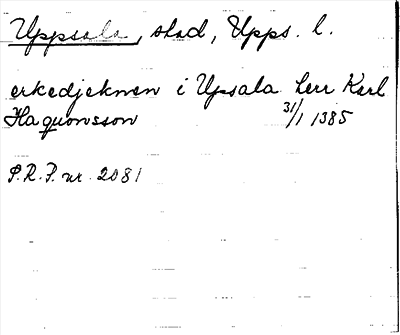 Uppsala, stad, Upps. l.
erkedjeknen i Upsala herr Karl
Haquonsson 31/1 1385
S.R.P. nr. 2081